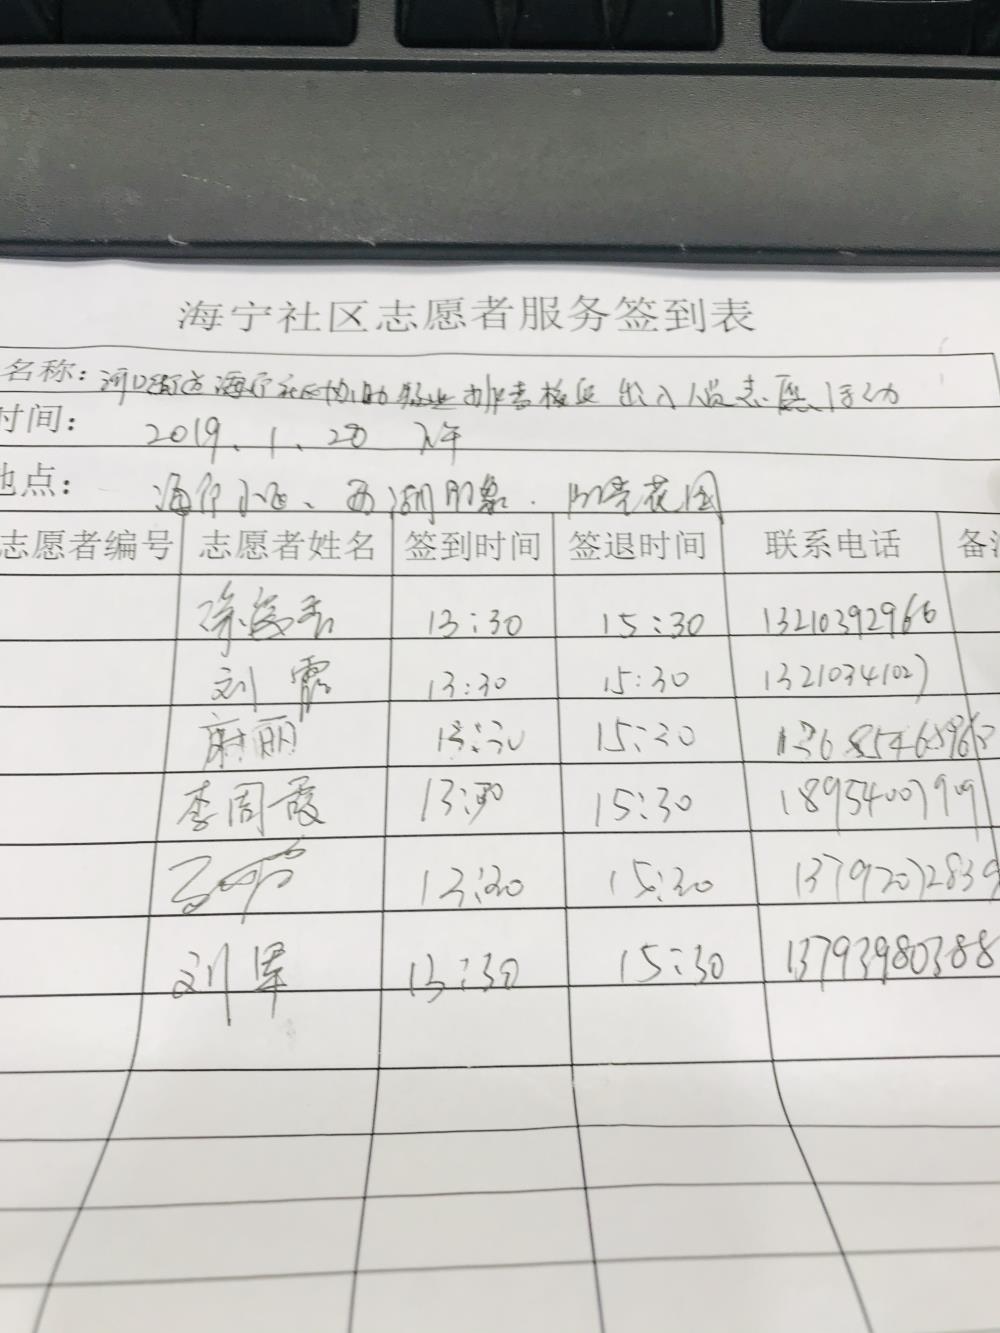 海宁社区志愿者服务签到表
名称：河口街道海宁社区协助物业排查核实出入人员志愿活动
时间： 2019.1.28 下午
地点： 海宁小区、西湖印象．花园
志愿者编号 志愿者姓名 签到时间 签退时间 联系电话 备注
13:30 15:30 13210392966
刘霞 13:30 15:30 13210341027
丽 13:30 15:30
李周霞 13:30 15:30 18954007909
13:30 15:30 13792072839
刘军 13:30 15:30 13793980388